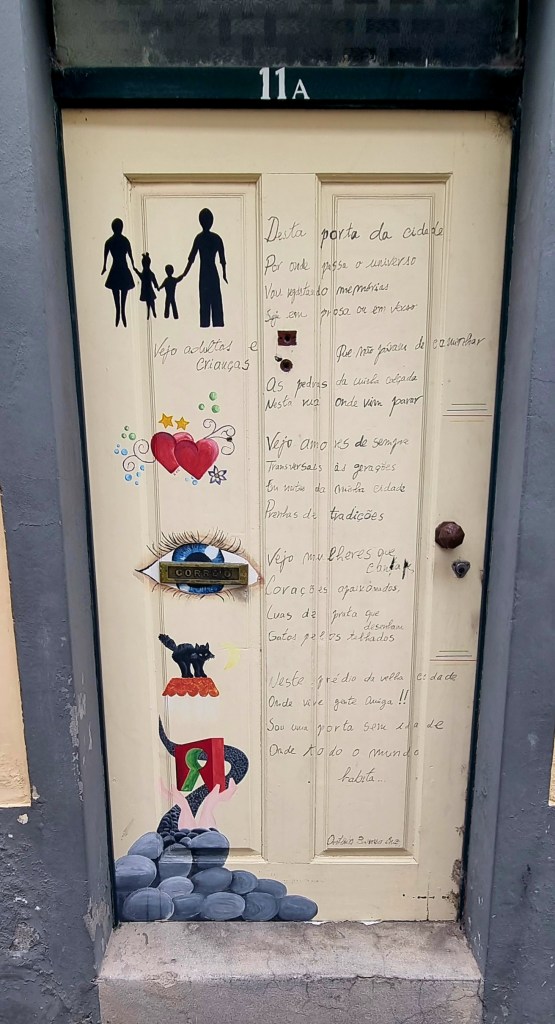 11A
Desta porta da cidade
Por onde passa o universo
Vou registando memórias
Seja em prosa ou em verso
Vejo adultos e
crianças
Que não param de caminhar
As pedras da minha calçada
Nesta rua onde vim parar
Vejo amores de sempre
Transversais às gerações
Em noites da minha cidade
Prenhas de tradições
CORREIO
Vejo mulheres que
cantam
Corações apaixonados,
Luas de prata que
desenham
Gatos pelos telhados
Neste prédio da velha cidade
Onde vive gente amiga!!
Sou uma porta sem idade
Onde todo o mundo
habita...